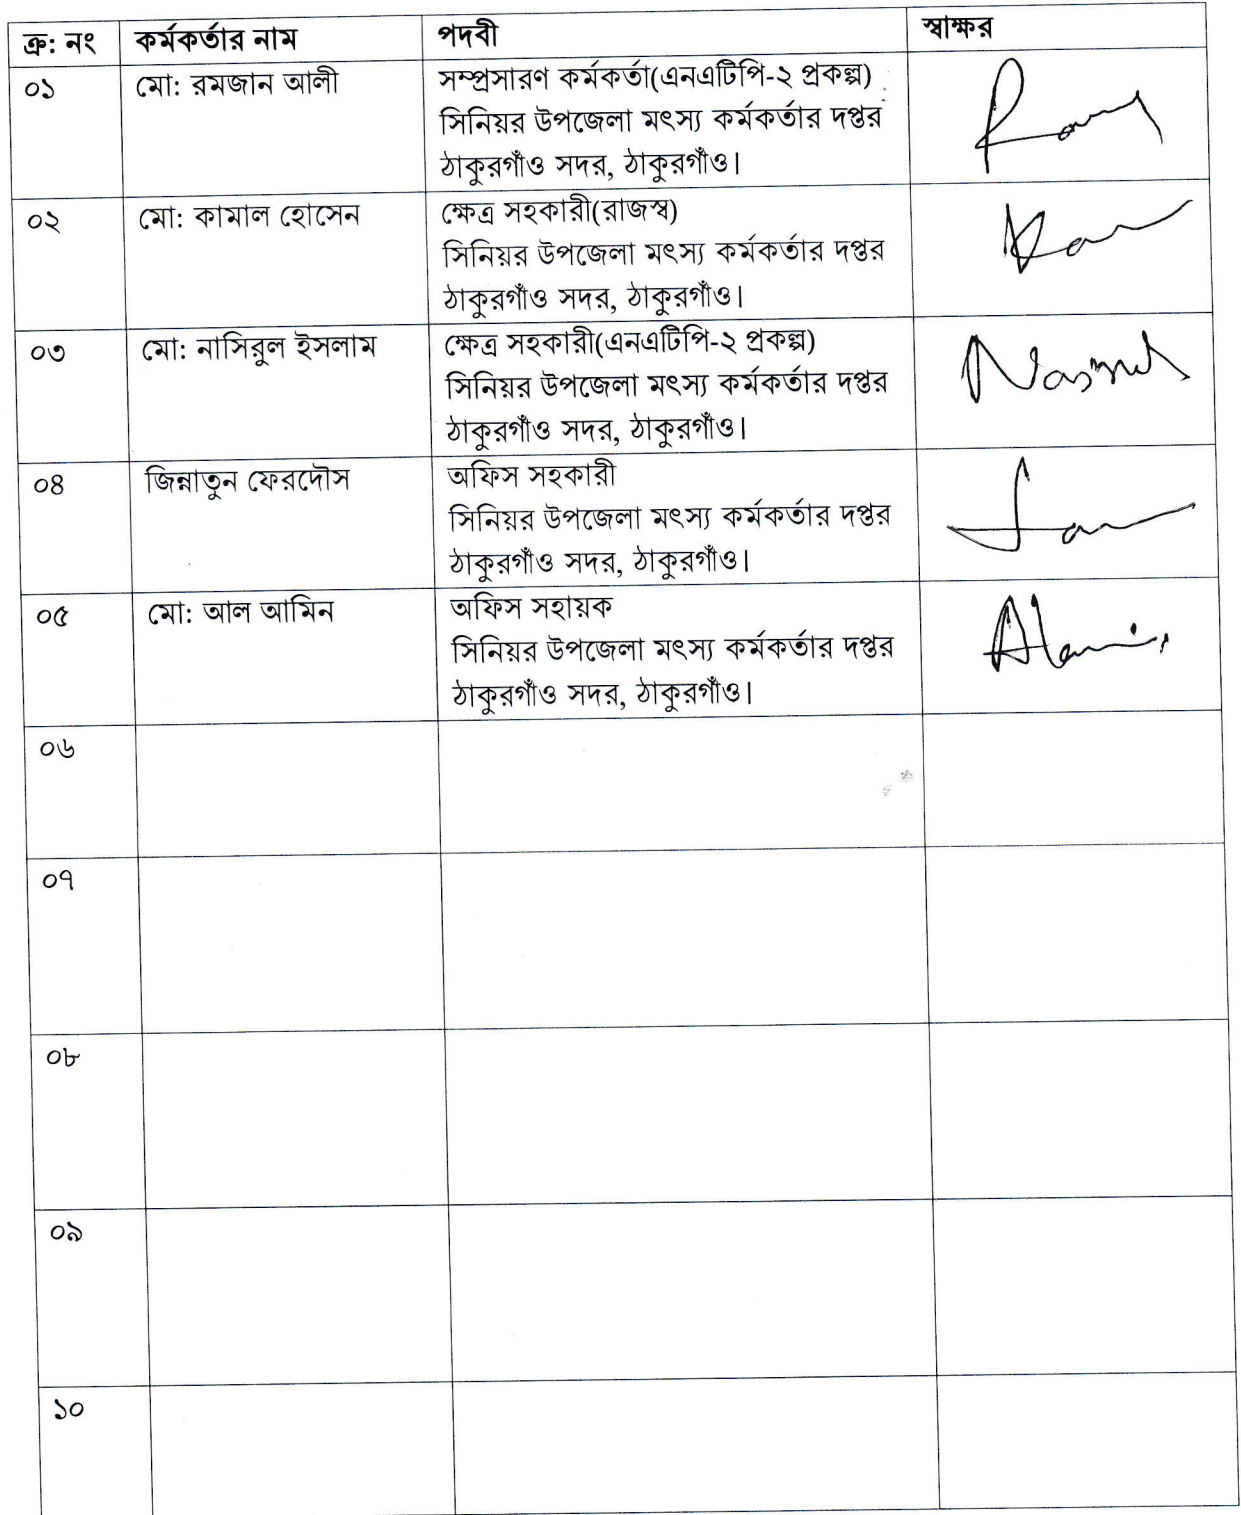 ক্র: নং কর্মকর্তার নাম পদবী স্বাক্ষর
০১ মো: রমজান আলী সম্প্রসারণ কর্মকর্তা(এনএটিপি-২ প্রকল্প)
সিনিয়র উপজেলা মৎস্য কর্মকর্তার দপ্তর
ঠাকুরগাঁও সদর, ঠাকুরগাঁও।
০২ মো: কামাল হোসেন ক্ষেত্র সহকারী(রাজস্ব)
সিনিয়র উপজেলা মৎস্য কর্মকর্তার দপ্তর
ঠাকুরগাঁও সদর, ঠাকুরগাঁও।
০৩ মো: নাসিরুল ইসলাম ক্ষেত্র সহকারী(এনএটিপি-২ প্রকল্প)
সিনিয়র উপজেলা মৎস্য কর্মকর্তার দপ্তর
ঠাকুরগাঁও সদর, ঠাকুরগাঁও।
০৪ জিন্নাতুন ফেরদৌস অফিস সহকারী
সিনিয়র উপজেলা মৎস্য কর্মকর্তার দপ্তর
ঠাকুরগাঁও সদর, ঠাকুরগাঁও।
০৫ মো: আল আমিন অফিস সহায়ক
সিনিয়র উপজেলা মৎস্য কর্মকর্তার দপ্তর
ঠাকুরগাঁও সদর, ঠাকুরগাঁও।
০৬
০৭
০৮
০৯
১০